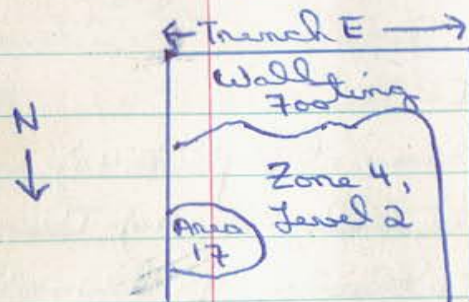 Trench E
Wall
Footing
N
Zone 4,
Level 2
Area
17